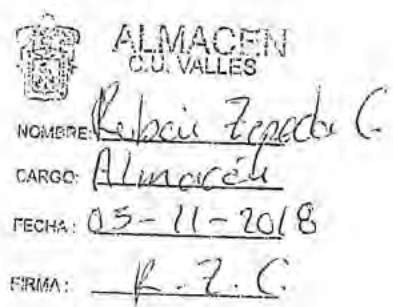 ALMACEN
C.U. VALLES
NOMBRE: Rubén Zepeda C.
CARGO: Almacén
FECHA: 05-11-2018
FIRMA: R.Z.C.